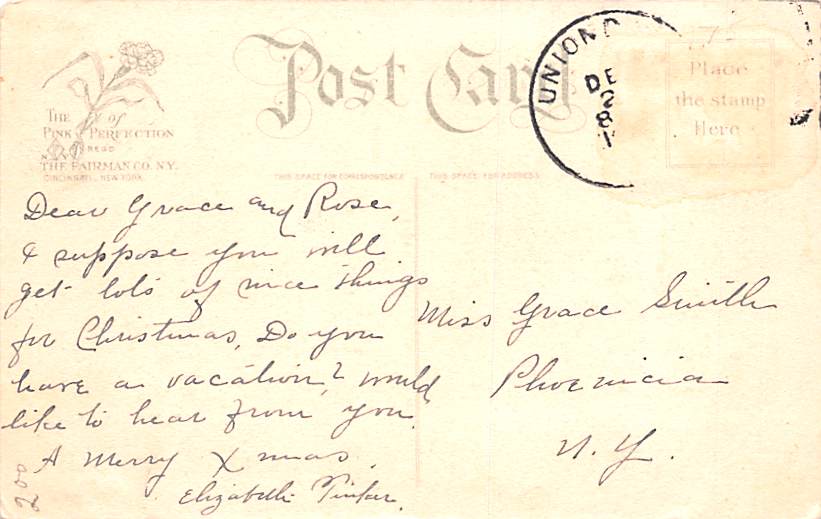 Post Card
UNION
DE
2
8
1
Place
the stamp
Here
The of
Pink Perfection
REGD
THE FAIRMAN CO. N.Y.
CINCINNATI, NEW YORK
THIS SPACE FOR CORRESPONDENCE
THIS SPACE FOR ADDRESS
Dear Grace and Rose,
I suppose you will
get lots of nice things
for Christmas, Do you
have a vacation? would
like to hear from you.
A Merry Xmas.
Elizabeth
200
Miss Grace Smith
Phoenicia
N. Y.